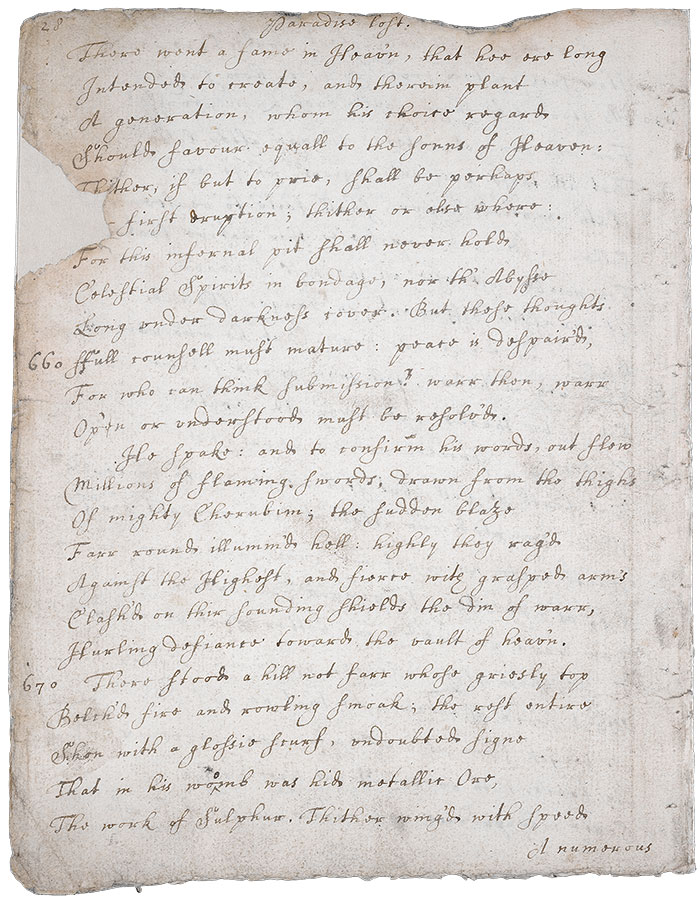 28 Paradise lost.
There went a fame in Heav'n, that hee ere long
Intended to create, and therein plant
A generation, whom his choice regard
Should favour equall to the sonns of Heaven:
Thither, if but to prie, shall be perhaps
first eruption; thither or else where:
For this infernal pit shall never hold
Celestial Spirits in bondage, nor th' Abysse
Long under darkness cover. But these thoughts
660 ffull counsell must mature: peace is despair'd,
For who can think submission? warr then, warr
Op'en or understood must be resolv'd.
He spake: and to confirm his words, out flew
Millions of flaming swords, drawn from the thighs
Of mighty Cherubim; the sudden blaze
Farr round illumin'd hell: highly they rag'd
Against the Highest, and fierce with grasped arm's
Clash'd on thir sounding shields the din of warr,
Hurling defiance toward the vault of heav'n.
670 There stood a hill not farr whose griesly top
Belch'd fire and rowling smoak; the rest entire
Shon with a glossie scurf, undoubted signe
That in his womb was hid metallic Ore,
The work of Sulphur. Thither wing'd with speed
A numerous